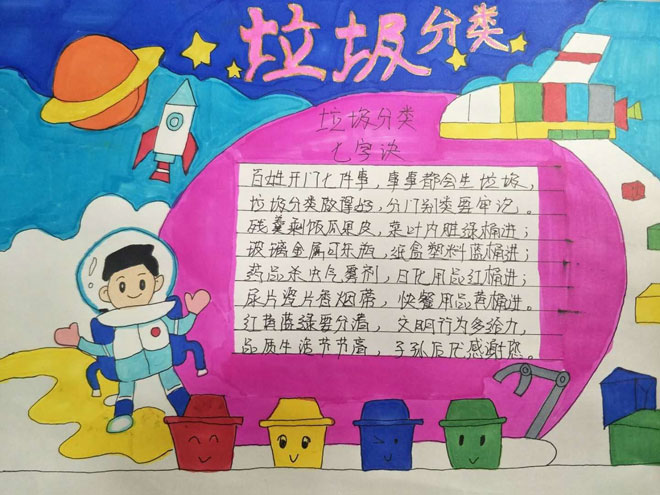 垃圾分类
垃圾分类
七字诀
百姓开门七件事，事事都会生垃圾，
垃圾分类放得好，分门别类要牢记。
残羹剩饭瓜果皮，菜叶内脏绿桶进；
玻璃金属可乐瓶，纸盒塑料蓝桶进；
药品杀虫气雾剂，日化用品红桶进；
尿片瓷片香烟蒂，快餐用品黄桶进。
红黄蓝绿要分清，文明行为多给力，
品质生活节节高，子孙后代感谢您。